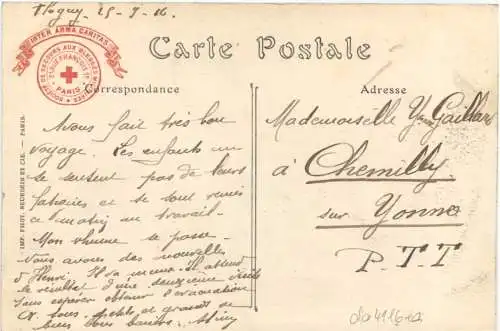 25-9-16
INTER ARMA CARITAS
SOCIÉTÉ DE SECOURS AUX BLESSÉS MILITAIRES
PARIS
Carte Postale
Correspondance
Adresse
Avons fait très bon
voyage. Les enfants ne
se sentent pas de leurs
fatigues et se sont remis
ce matin au travail.
Mon rhume se passe.
Vous avons des nouvelles
d'Henri. Il va mieux. Il attend
le résultat d'une deuxième visite
sans espérer obtenir l'évacuation
à tous
Mademoiselle Y. Gaillard
à Chemilly
sur Yonne
P.TT
IMP. PHOT. NEURDEIN ET CIE. — PARIS.